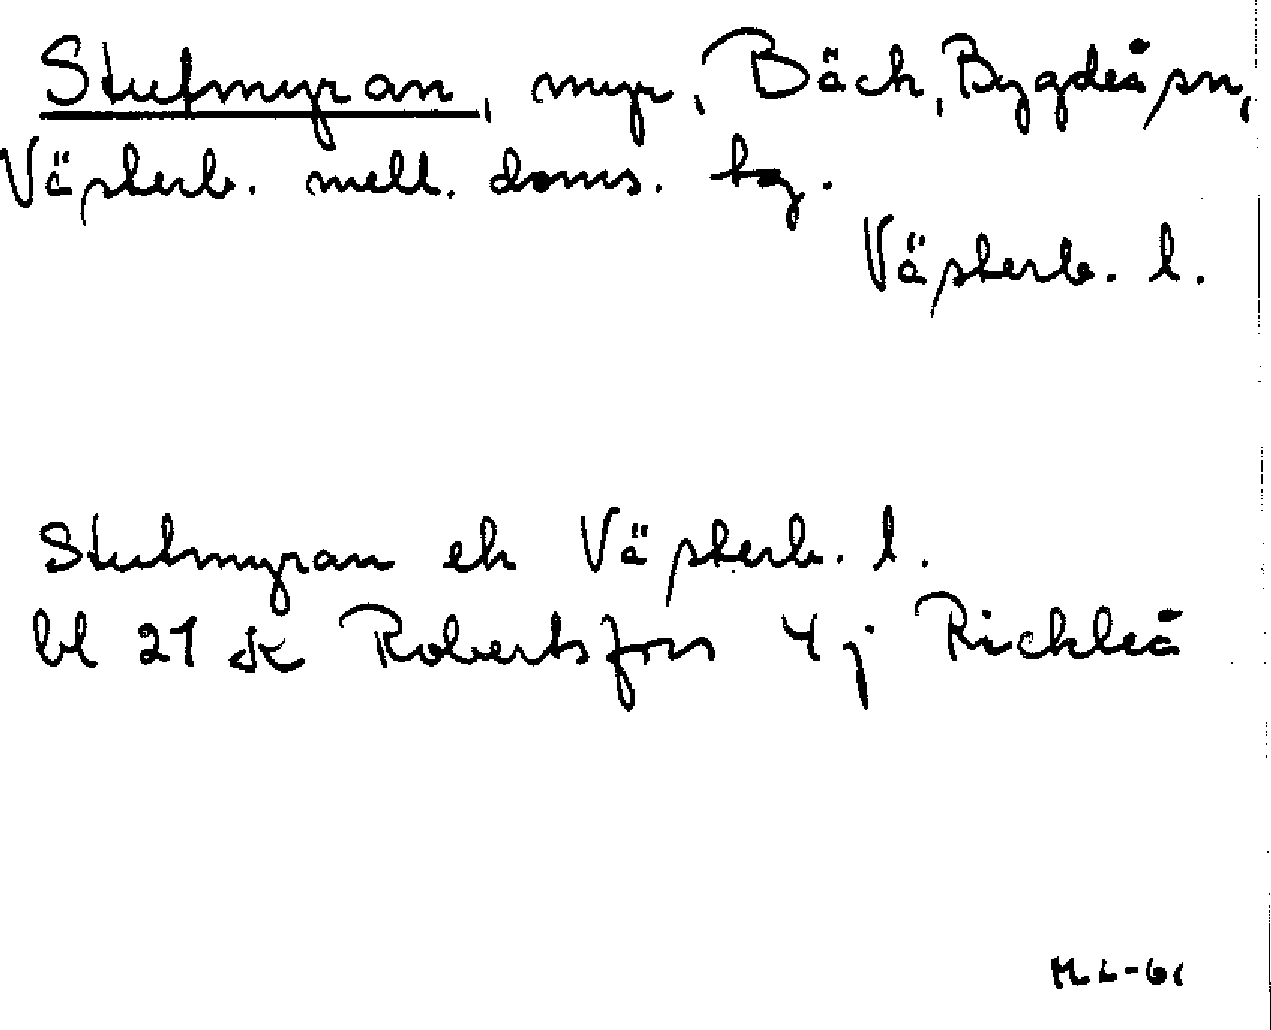 Stutmyran, myr, Bäck, Bygdeå sn,
Västerb. mell. doms. tg.
Västerb. l.
Stutmyran ek Västerb. l.
bl 21 K Robertsfors 4 j Rickleå
ML-61